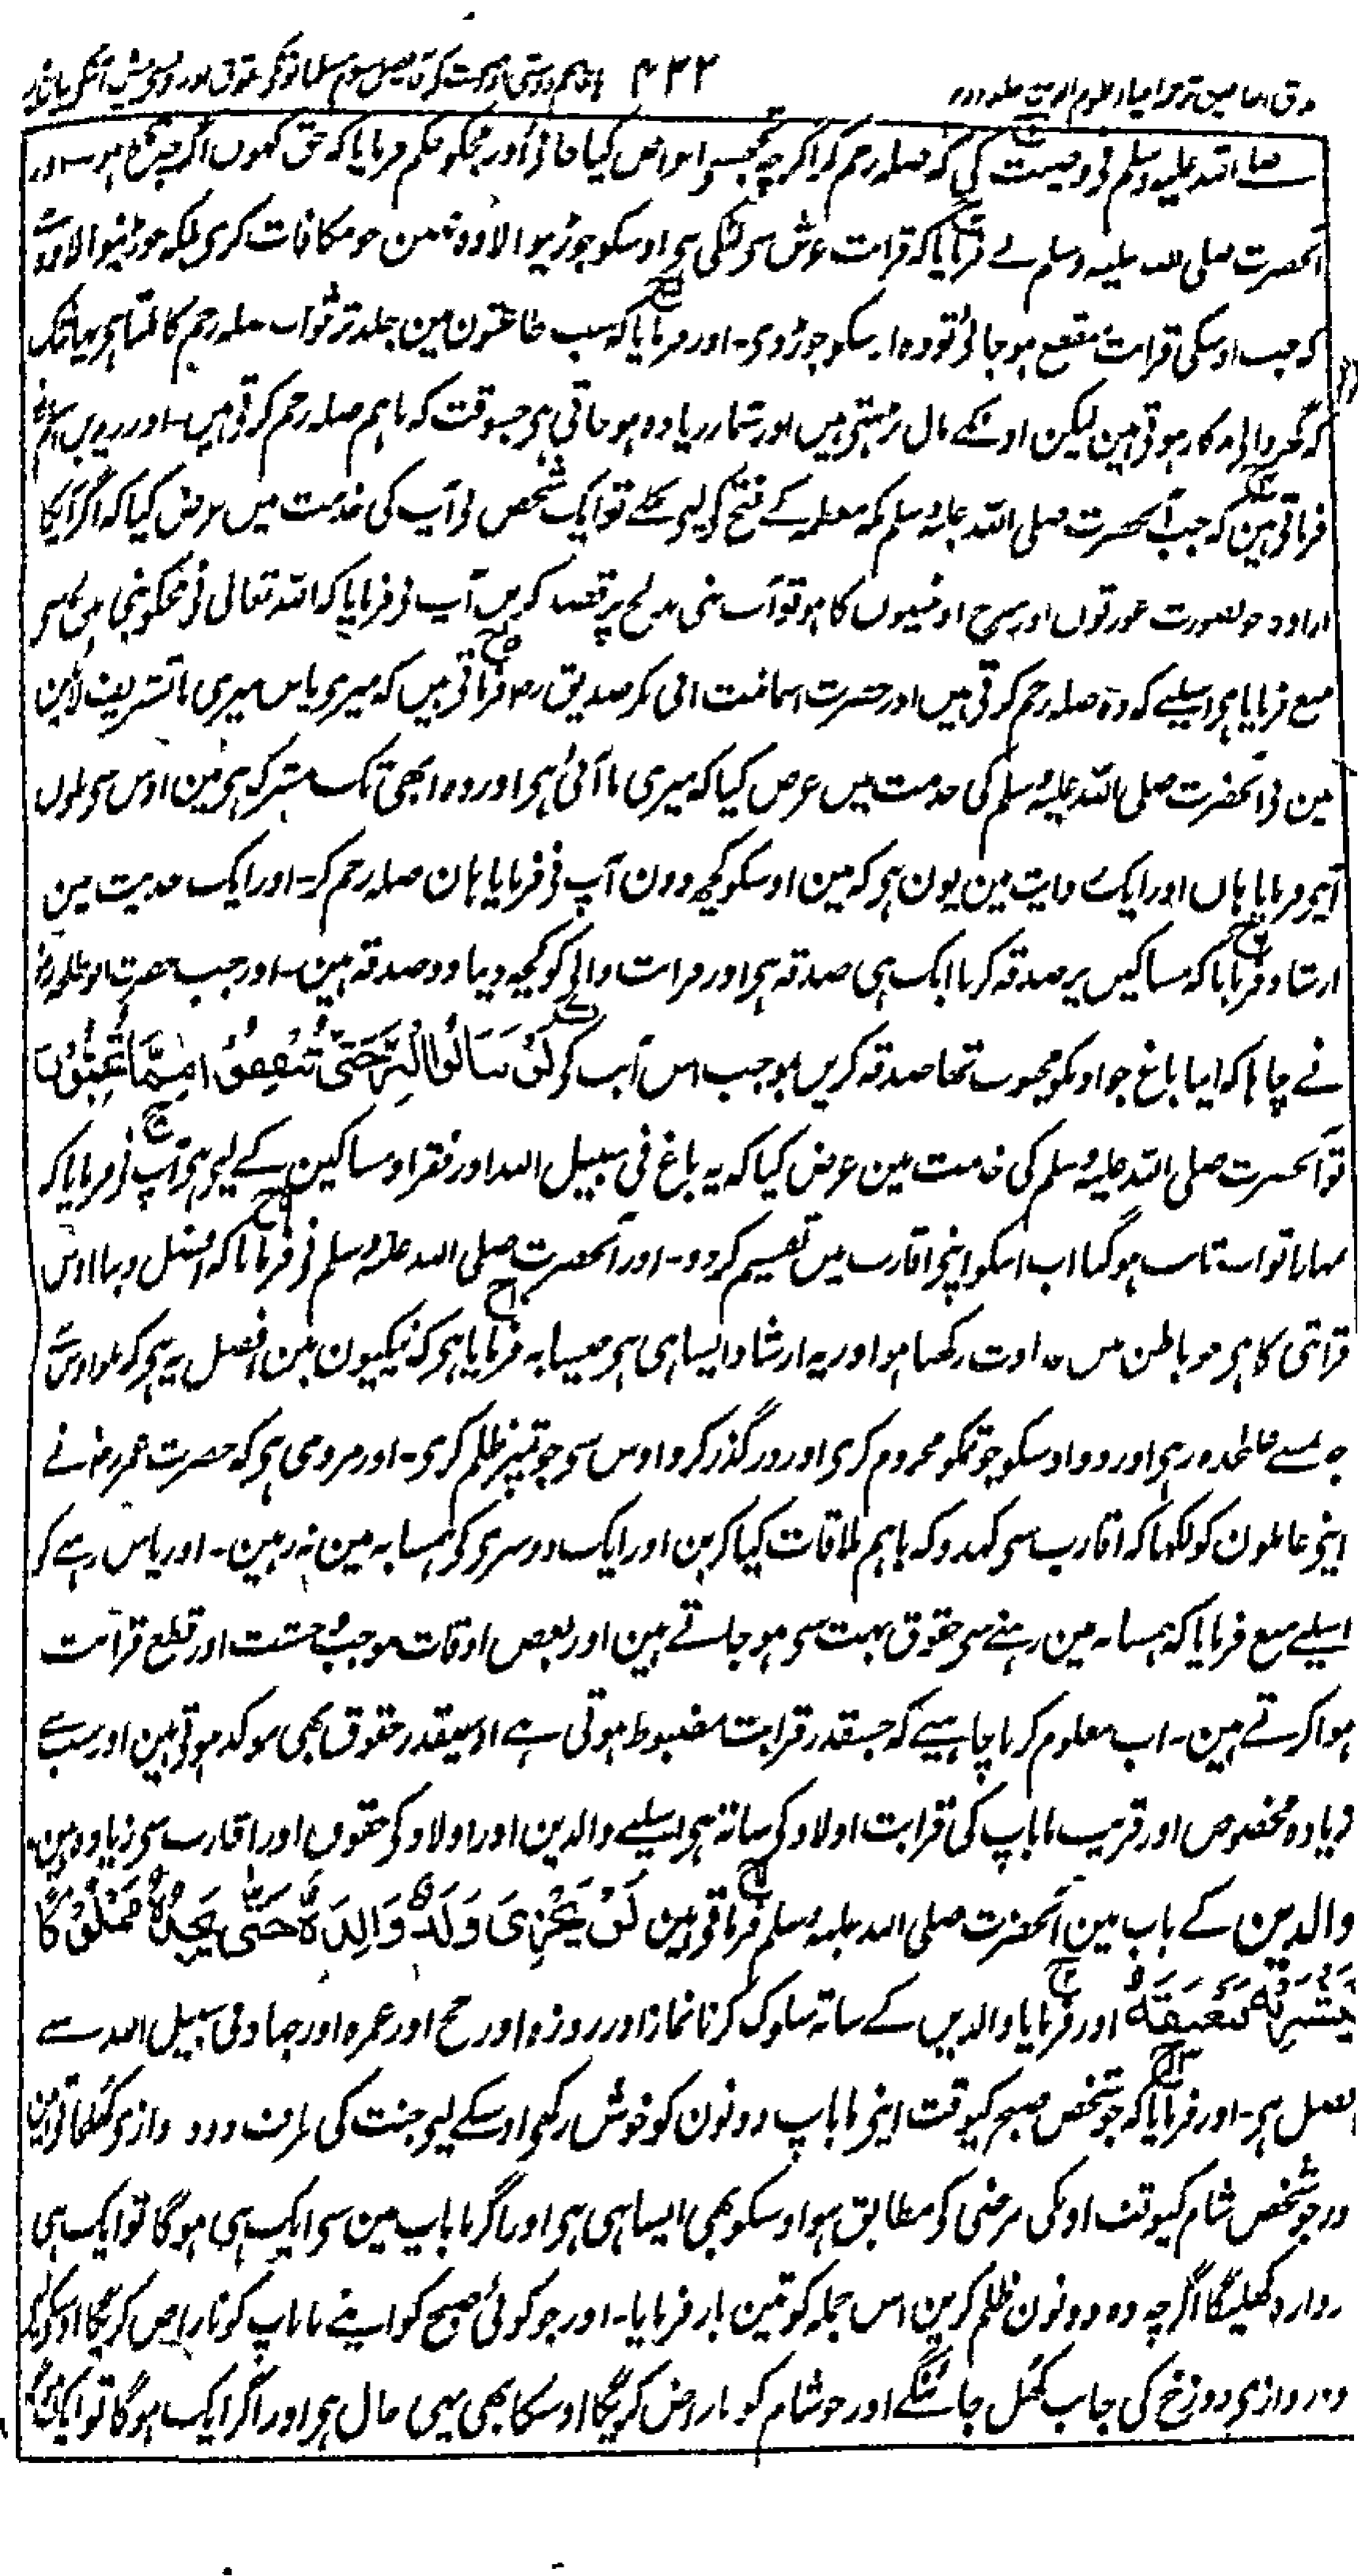 مذاق العارفین ترجمہ احیاء علوم الدین جلد دوم ۴۳۲
صلے اللہ علیہ وسلم نے وصیت کی کہ صلہ رحم کر اگرچہ تجھسے اعراض کیا جائے اور مجکو حکم فرمایا کہ حق کہوں اگرچہ تلخ ہو۔ اور
آنحضرت صلی اللہ علیہ وسلم نے فرمایا کہ قرابت عرش سی لٹکی ہی اوسکو جوڑنیوالا وہ نہین جو مکافات کری بلکہ جوڑنیوالا وہ ہے
کہ جب اوسکی قرابت منقطع ہو جائی تو وہ اوسکو جوڑ دی۔ اور فرمایا کہ سب طاعتون مین جلد تر ثواب صلہ رحم کا ملتا ہی یہانتک
کہ گھر والی بدکار ہوتی ہین لیکن اونکے مال بڑہتی ہیں اور شمار زیادہ ہو جاتی ہی جسوقت کہ باہم صلہ رحم کرتی ہیں۔ اور زید بن اسلم
فرماتی ہین کہ جب آنحضرت صلی اللہ علیہ وسلم مکہ معظمہ کے فتح کی لیے نکلے تو ایک شخص نی آپ کی خدمت میں عرض کیا کہ اگر آپکا
ارادہ خوبصورت عورتوں اور سرخ اونٹنیوں کا ہو تو آپ بنی مدلج پر قصد کریں آپ نی فرمایا کہ اللہ تعالی نی مجکو بنی مدلج سی
منع فرمایا ہی اسلیے کہ وہ صلہ رحم کرتی ہیں اور حضرت اسما بنت ابی بکر صدیق رض فرماتی ہیں کہ میری پاس میری ما تشریف لائین
مین نی آنحضرت صلی اللہ علیہ وسلم کی خدمت میں عرض کیا کہ میری ما آئی ہی اور وہ ابھی تک مشرکہ ہی مین اوس سی ملوں
آپنی فرمایا ہاں اور ایک روایت مین یون ہی کہ مین اوسکو کچھ دون آپ نی فرمایا ہان صلہ رحم کر۔ اور ایک حدیث مین
ارشاد فرمایا کہ مساکیں پر صدقہ کرنا ایک ہی صدقہ ہی اور قرابت والی کو کچھ دینا دو صدقہ ہین۔ اور جب حضرت ابو طلحہ رض
نے چاہا کہ اپنا باغ جو اونکو محبوب تھا صدقہ کریں بموجب اس آیت کو لَنْ تَنَالُوا الْبِرَّ حَتّٰى تُنْفِقُوْا مِمَّا تُحِبُّوْنَ
تو آنحضرت صلی اللہ علیہ وسلم کی خدمت مین عرض کیا کہ یہ باغ فی سبیل اللہ اور فقرا و مساکین کے لیی ہی آپ نی فرمایا کہ
تمہارا ثواب ثابت ہو گیا اب اسکو اپنی اقارب میں تقسیم کر دو۔ اور آنحضرت صلی اللہ علیہ وسلم نی فرمایا کہ افضل دینا اوس
قرابتی کا ہی جو باطن میں عداوت رکھتا ہو اور یہ ارشاد ایسا ہی ہی جیسا یہ فرمایا ہی کہ نیکیون مین افضل یہ ہی کہ ملو اوس سے
جو تمسے علیحدہ رہی اور دو اوسکو جو تمکو محروم کری اور درگذر کرو اوس سی جو تمپر ظلم کری۔ اور مروی ہی کہ حضرت عمر رض نے
اپنی عاملون کو لکھا کہ اقارب سی کہدو کہ باہم ملاقات کیا کرین اور ایک دوسری کی ہمسایہ مین نہ رہین۔ اور پاس رہنے کو
اسلیے منع فرمایا کہ ہمسایہ مین رہنے سی حقوق بہت سی ہو جاتے ہین اور بعض اوقات موجب وحشت اور قطع قرابت
ہوا کرتے ہین۔ اب معلوم کرنا چاہیے کہ جسقدر قرابت مضبوط ہوتی ہے اوسیقدر حقوق بھی موکد ہوتی ہین اور سب سے
زیادہ مخصوص اور قریب ما باپ کی قرابت اولاد کی ساتھ ہی اسلیے والدین اور اولاد کی حقوق اور اقارب سی زیادہ ہین۔
والدین کے باب مین آنحضرت صلی اللہ علیہ وسلم فرماتی ہین لَنْ يَجْزِىَ وَلَدٌ وَالِدَهٗ حَتّٰى يَجِدَهٗ مَمْلُوْكًا
فَيَشْتَرِيَهٗ فَيُعْتِقَهٗ اور فرمایا والدین کے ساتھ سلوک کرنا نماز اور روزہ اور حج اور عمرہ اور جہاد فی سبیل اللہ سے
افضل ہی۔ اور فرمایا کہ جو شخص صبح کیوقت اپنی ما باپ دونون کو خوش رکھی اوسکے لیی جنت کی طرف دو دروازی کھلجاتی ہین
اور جو شخص شام کیوقت اونکی مرضی کو مطابق ہو اوسکو بھی ایسا ہی ہی اور اگر ما باپ مین سی ایک ہی ہو گا تو ایک ہی
دروازہ کھلیگا اگرچہ وہ دونون ظلم کرین اس جملہ کو تین بار فرمایا۔ اور جو کوئی صبح کو اپنے ما باپ کو ناراض کریگا اوسکی لیے
دو دروازی دوزخ کی جانب کھل جائینگے اور جو شام کو ناراض کریگا اوسکا بھی یہی حال ہی اور اگر ایک ہوگا تو ایک